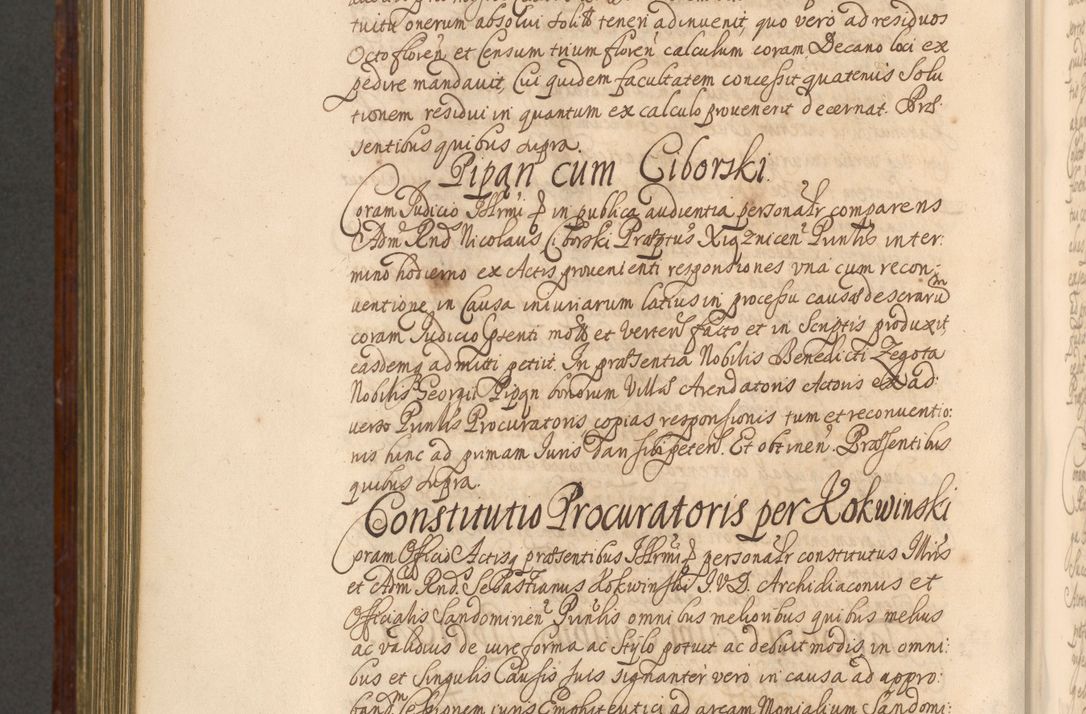 tuitu onerum absolui solitt teneri adinuenit, quo vero ad residuos
Octo floreñ et Censum trium floreñ calculum, coram Decano loci ex
pedire mandauit, Cui quidem facultatem concessit quatenus Solu
tionem residui in quantum ex calculo provenerit decernat. Præ
sentibus quibus supra.
Pipąn cum Ciborski.
Coram Judicio Illrmi in publica audientia personalr comparens
Adm Rnd Nicolaus Ciborski Præptus Xiąznicen Punlis inter:
mino hodierno ex Actis provenienti responsiones vna cum recon:
ventione in Causa iniuriarum latius in processu causæ descrarum
coram Judicio psenti mott et Verten facto et in Scriptis produxit
easdemq admitti petiit. In præsentia Nobilis Benedicti Zegota
Nobilis Georgii Pipąn bonorum Villæ Arendatoris Actoris ex ad
verso Punlis Procuratoris copias responsionis tum et reconventio:
nis hinc ad primam Iuris dan sibi peten. Et obtinen. Præsentibus
quibus supra.
Constitutio Procuratoris per Kokwinski
Coram Officio Actisq præsentibus Illrmi personalr constitutus Illris
et Adm Rnd. Sebastianus Kokwinski I.V.D. Archidiaconus et
Officialis Sandomirien Punlis omnibus melioribus quibus melius
ac validius de iure forma ac stylo potuit ac debuit modis in omni:
bus et singulis Causis suis signanter vero in causa ad appro:
band Lectionem iuris Emphiteutici ad aream Monialium Sandomi: